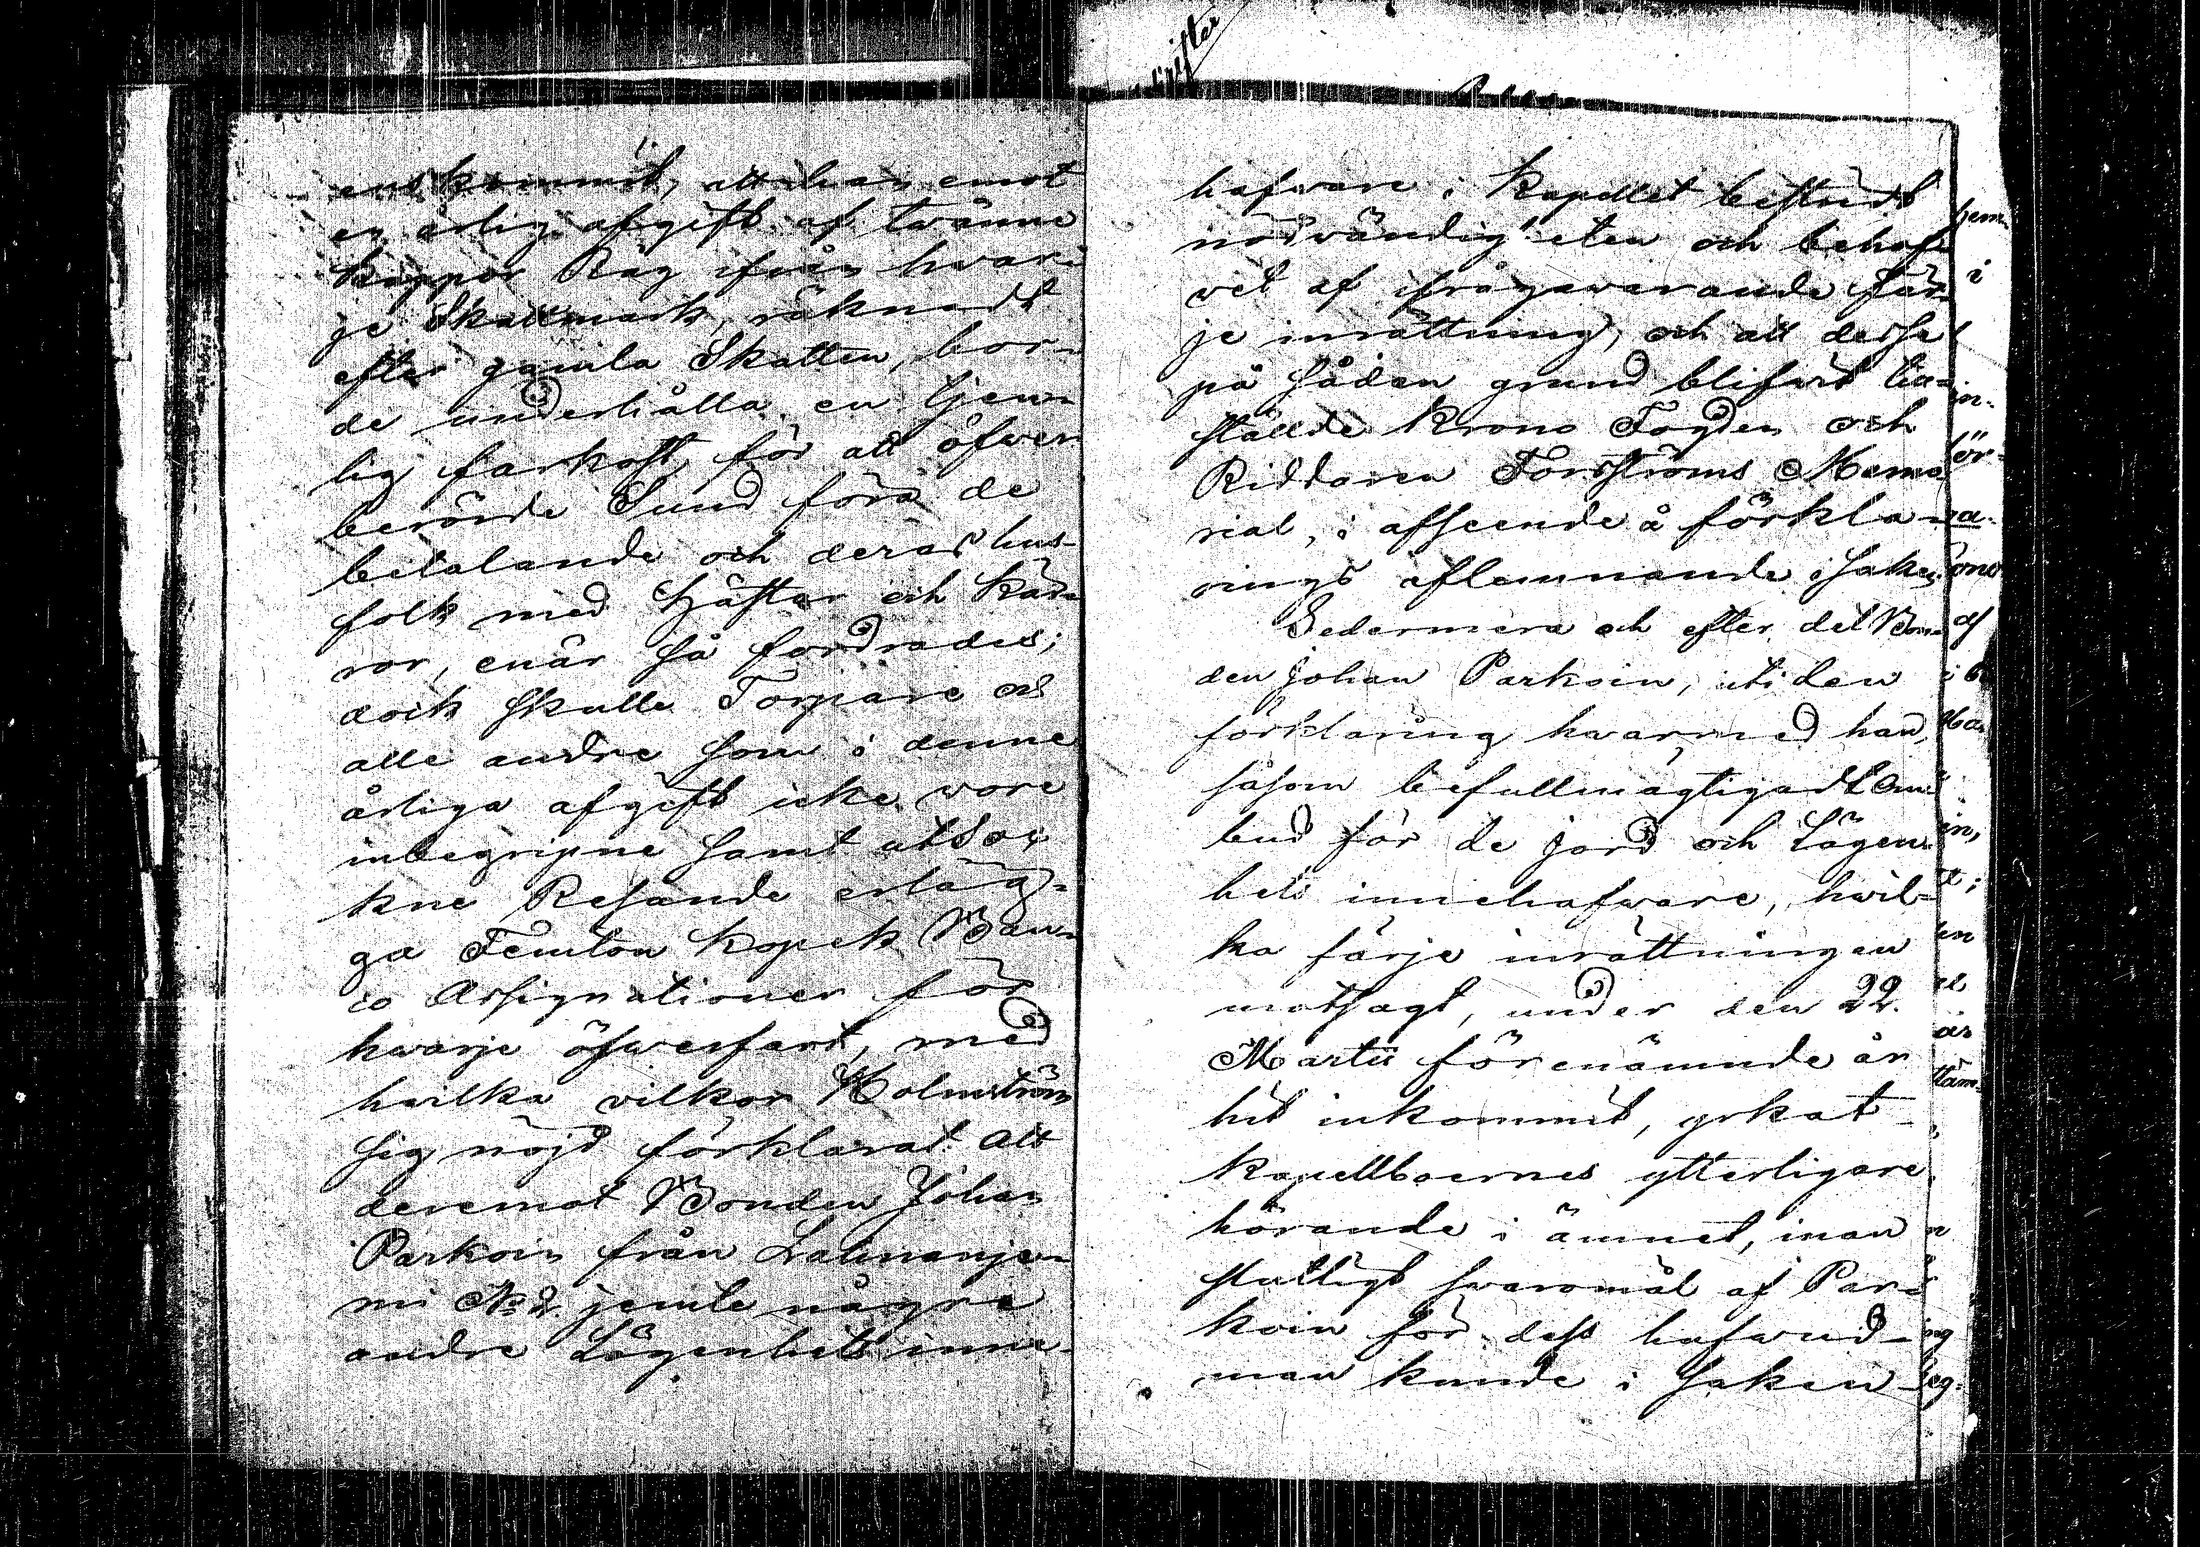 enskommit, att han emot
en årlig afgift af twänne
kappor Råg ifrån hwar-
je Skattmark, räknadt
efter gamla Skatten, bor-
de underhålla en tjen-
lig farkost för att öfwer
berörde Sund föra de
betalande och deras hus-
folk med hästar och kär-
ror, enär så fordrades;
dock skulle Torpare och
alle andre som i denne
årliga afgift icke vore
inbegripne samt utsoc-
kne Resande erläg-
ga Femton kopek Ban-
co Assignationer för
hwarje öfwerfart, med
hwilka vilkor Holmström
sig nöjd förklarat. Att
deremot Bonden Johan
Parkoin från
No 2. jemte några
andre Lägenhets inne-
hafware i Kapellet bestridt
nödvändig'eten och behof-
vet af ifrågawarande fär-
je inrättning, och att desse
på sådan grund blifwit
ställde Krono Fogden och
Riddaren Forsströms Memo-
rial, i afseende å förkla-
rings aflemnande i saken.
Sedermera och efter det Bon-
den Johan Parkoin, uti den
förklaring hwarmed han,
såsom befullmägtigadt Om-
bud för de jord och Lägen-
hets innehafware, hwil-
ka färje inrättningen
motsagt, under den 22.
Martii förenämnde år
hit inkommit, yrkat
kapellboernes ytterligare
hörande i ämnet, inan
slutligt swaromål af Par-
koin för dess hufwud-
man kunde i saken